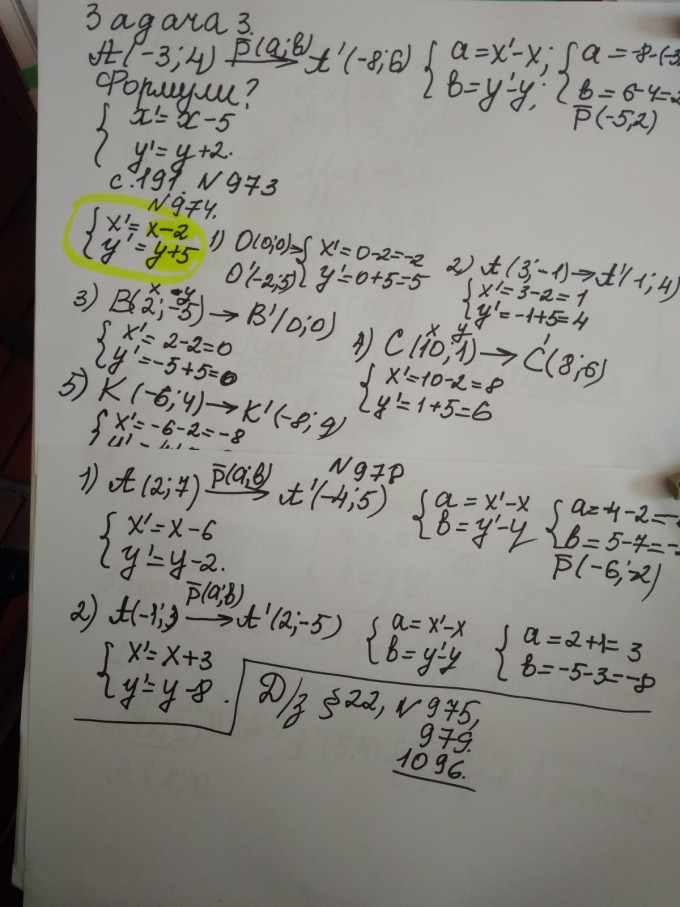 Задача 3.
A(-3;4) p̄(a;b) → A'(-8;6) { a=x'-x; { a=-8-(-3
b=y'-y; b=6-4=2
Формули? p̄(-5;2)
{ x'=x-5
y'=y+2.
с.191. N973
N974.
{ x'=x-2
y'=y+5
1) O(0;0)→ { x'=0-2=-2
O'(-2;5) y'=0+5=5
2) A(3;-1)→A'(1;4)
{ x'=3-2=1
y'=-1+5=4
x y
3) B(2;-5)→B'(0;0)
{ x'=2-2=0
y'=-5+5=0
x y
4) C(10;1)→C'(8;6)
{ x'=10-2=8
y'=1+5=6
5) K(-6;4)→K'(-8;9)
{ x'=-6-2=-8
N978
1) A(2;7) p̄(a;b) → A'(-4;5) { a=x'-x { a=-4-2=-
b=y'-y b=5-7=-
p̄(-6;-2)
{ x'=x-6
y'=y-2.
2) A(-1;3) p̄(a;b) → A'(2;-5) { a=x'-x { a=2+1=3
b=y'-y b=-5-3=-8
{ x'=x+3
y'=y-8.
Д/з §22, N975,
979.
1096.